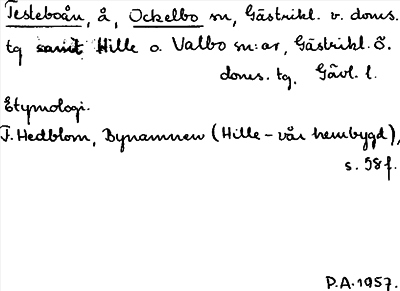 Testeboån, å, Ockelbo sn, Gästrikl. v. doms.
tg samt Hille o. Valbo sn:ar, Gästrikl. ö.
doms. tg, Gävl. l.
Etymologi.
F. Hedblom, Bynamnen (Hille - vår hembygd),
s. 58 f.
P.A. 1957.